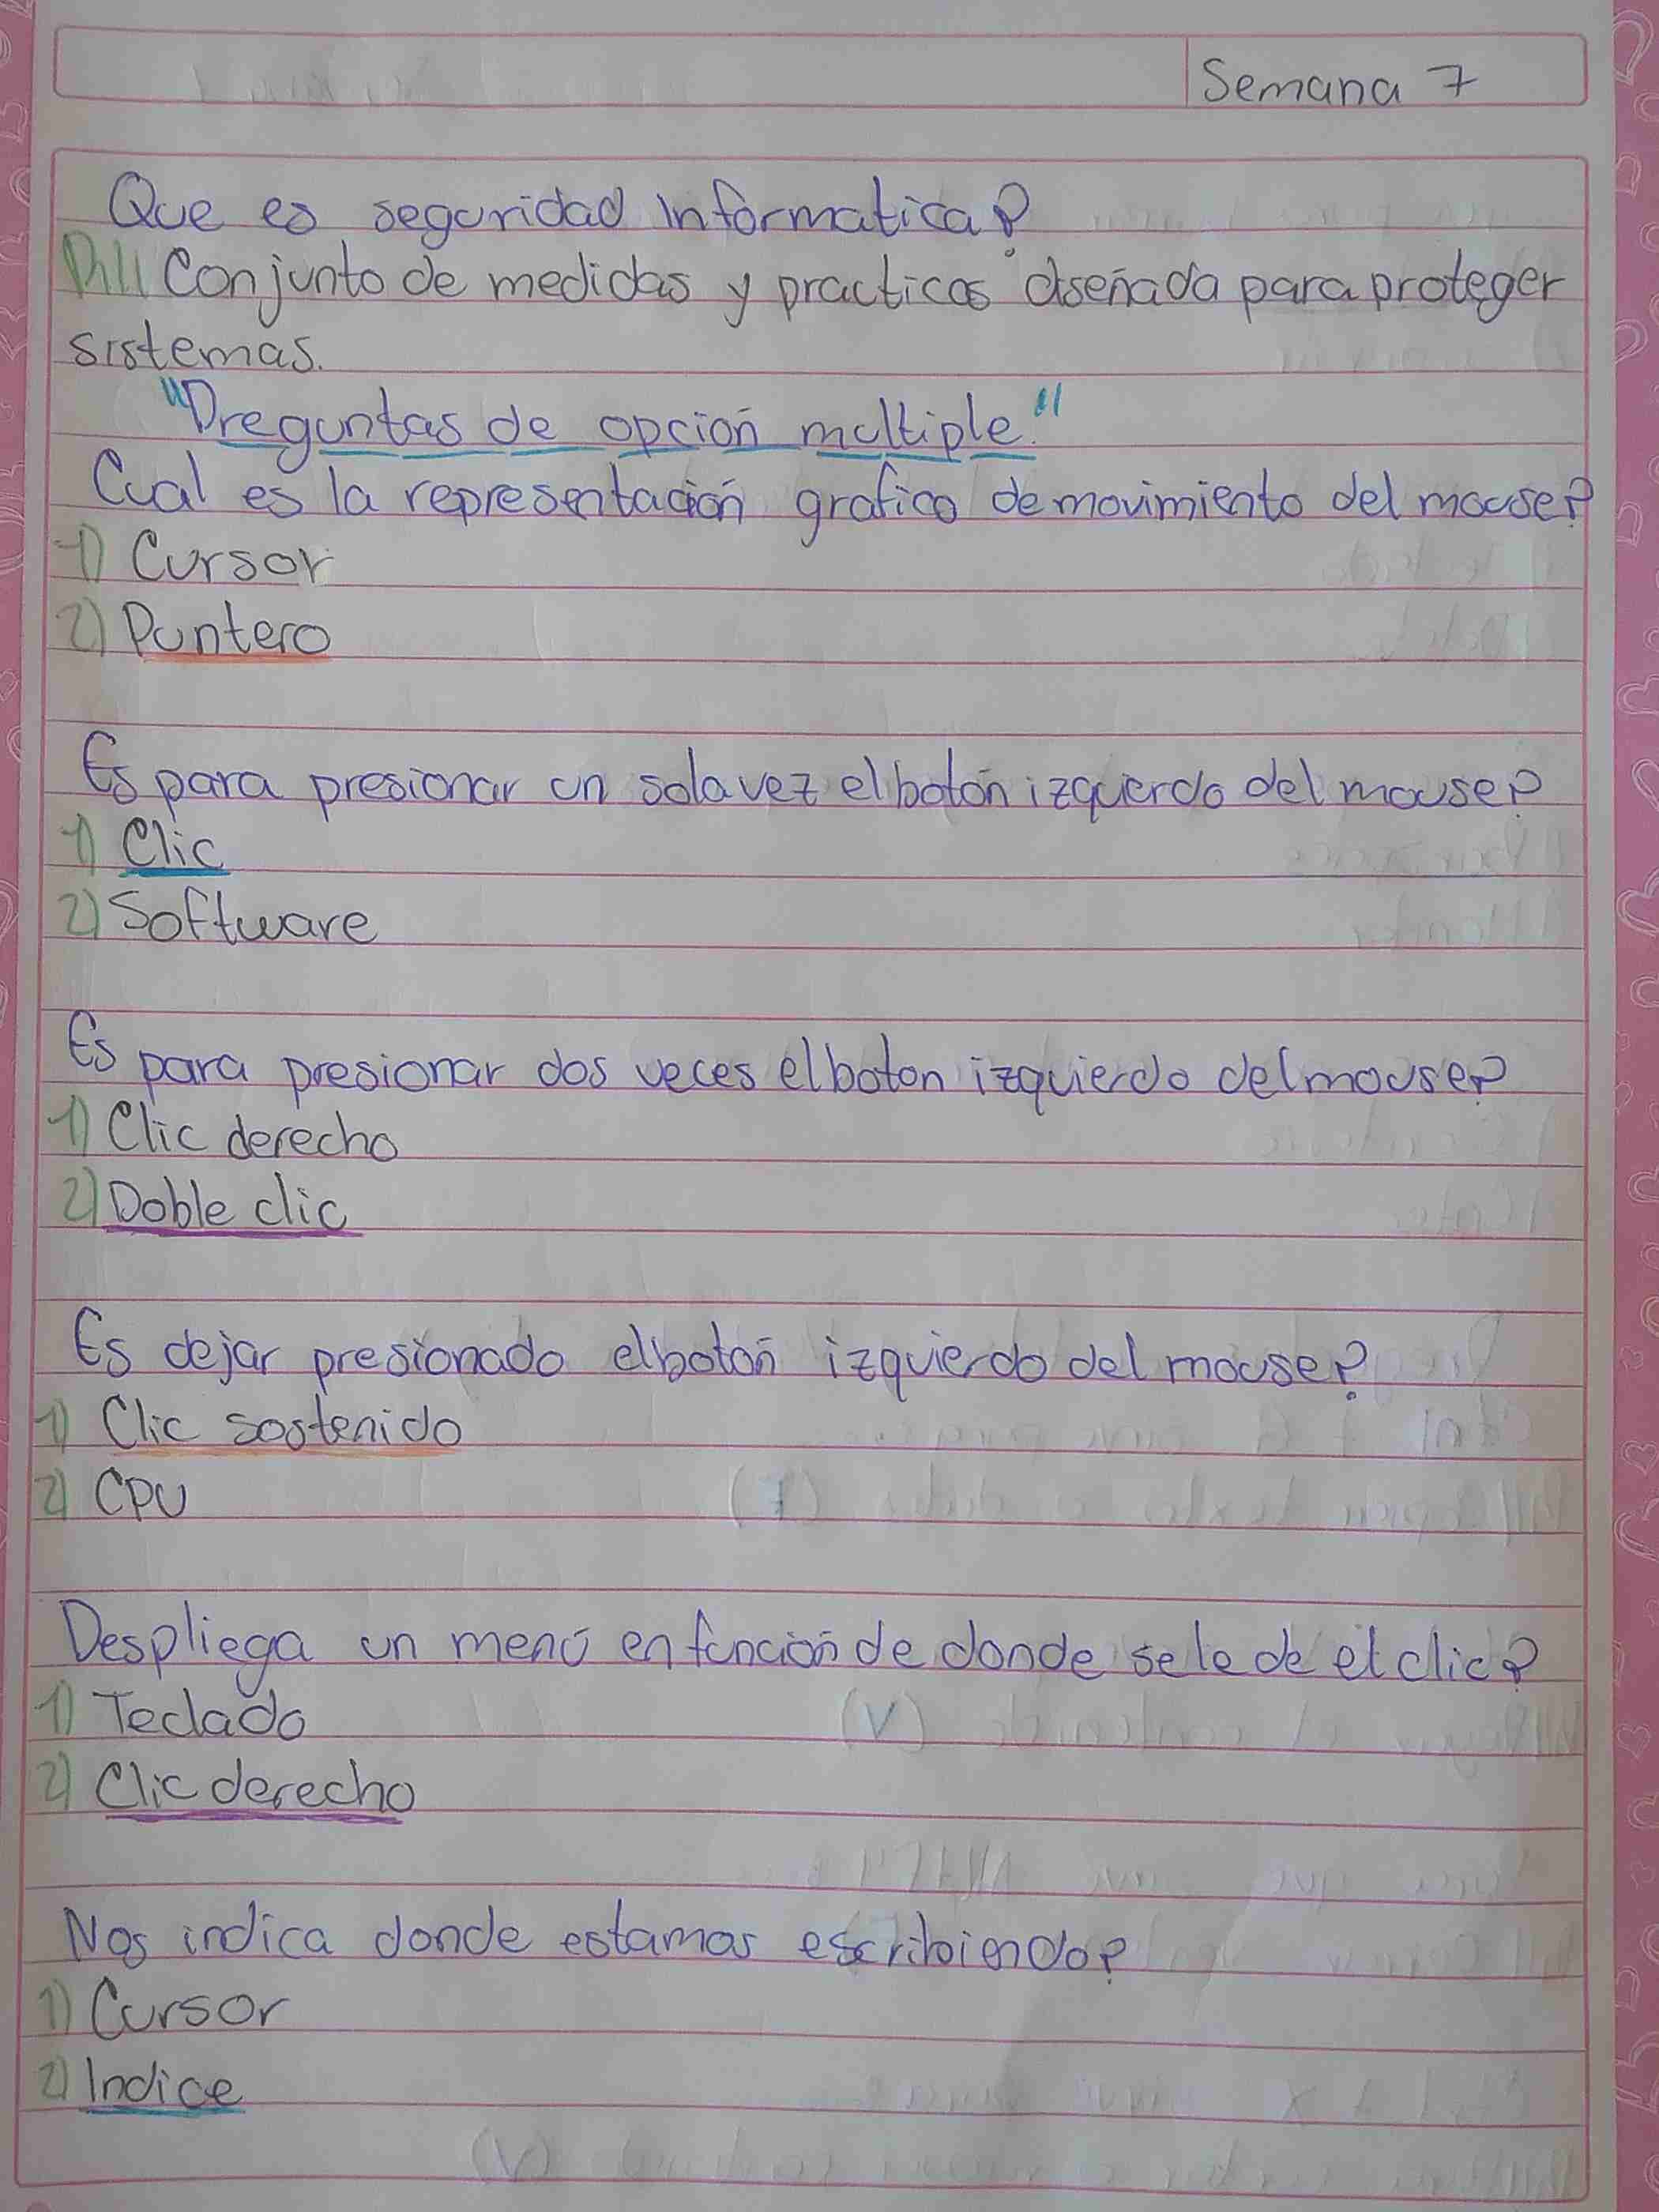 Semana 7
Que es seguridad informatica?
R/// Conjunto de medidas y practicas diseñada para proteger
sistemas.
"Preguntas de opción multiple."
Cual es la representación grafico de movimiento del mouse?
1) Cursor
2) Puntero
Es para presionar un sola vez el botón izquierdo del mouse?
1) Clic
2) Software
Es para presionar dos veces el boton izquierdo del mouse?
1) Clic derecho
2) Doble clic
Es dejar presionado el botón izquierdo del mouse?
1) Clic sostenido
2) CPU
Despliega un menú en función de donde se le de el clic?
1) Teclado
2) Clic derecho
Nos indica donde estamos escribiendo?
1) Cursor
2) Indice